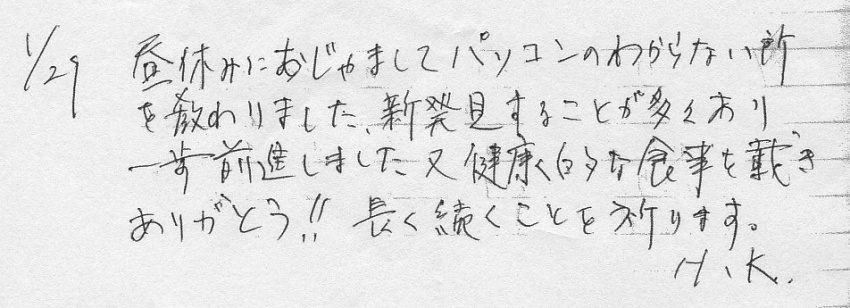 1/29 昼休みにおじゃましてパソコンのわからない所
を教わりました、新発見することが多くあり
一歩前進しました又健康的な食事を戴き
ありがとう!! 長く続くことを祈ります。
H.K.